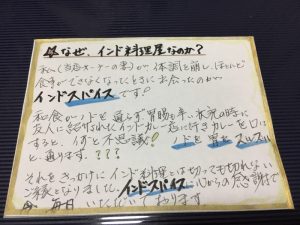 なぜ、インド料理屋なのか?
私(当店オーナーの妻)が、体調を崩し、ほとんど
食事ができなくなったときに出会ったのが
インドスパイスです!
和食がノドを通らず胃腸も辛い状況の時に
友人に紹介されたインドカレー店に行きカレーを口に
すると、ナント不思議! ノドと胃をスルスル
と通ります。???
それをきっかけにインド料理とは切っても切れない
ご縁となりました。インドスパイスに心からの感謝で
今、毎日 いただいております